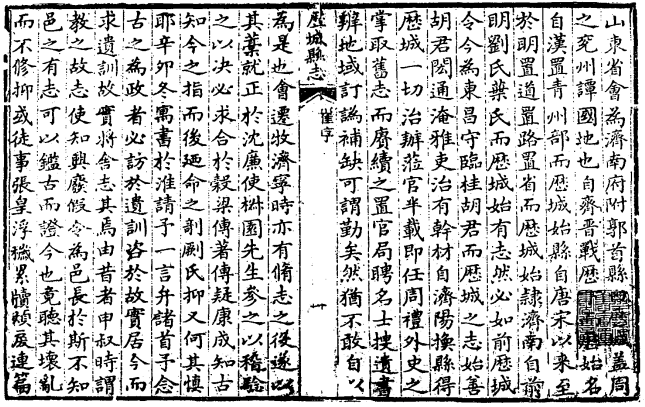 山東省會為濟南府附郭首縣曰歷城蓋周
之兗州譚國地也自齊晉戰歷始名
自漢置青州部而歷城始縣自唐宋以來至
於明置道置路置省而歷城始隸濟南自前
明劉氏葉氏而歷城始有志然必如前歷城
令今為東昌守臨桂胡君而歷城之志始善
胡君閎通淹雅吏治有幹材自濟陽換縣得
歷城一切治辦蒞官半載即任周禮外史之
掌取舊志而賡續之置官局聘名士搜遺書
辦地域訂譌補缺可謂勤矣然猶不敢自以
歷城縣志
崔序
為是也會遷牧濟寧時亦有脩志之役遂以
其藁就正於沈廉使椒園先生參之以稽驗
之以決必求合於榖梁傳著傳疑康成知古
知今之指而後廼命之剞劂氏抑又何其慎
耶辛卯冬寓書於淮請予一言弁諸首予念
古之為政者必訪於遺訓咨於故實居今而
求遺訓故實將舍志其焉由昔者申叔時謂
教之故志使知興廢假令為邑長於斯不知
邑之有志可以鑑古而證今也竟聽其壞亂
而不修抑或徒事張皇浮穢累牘連篇